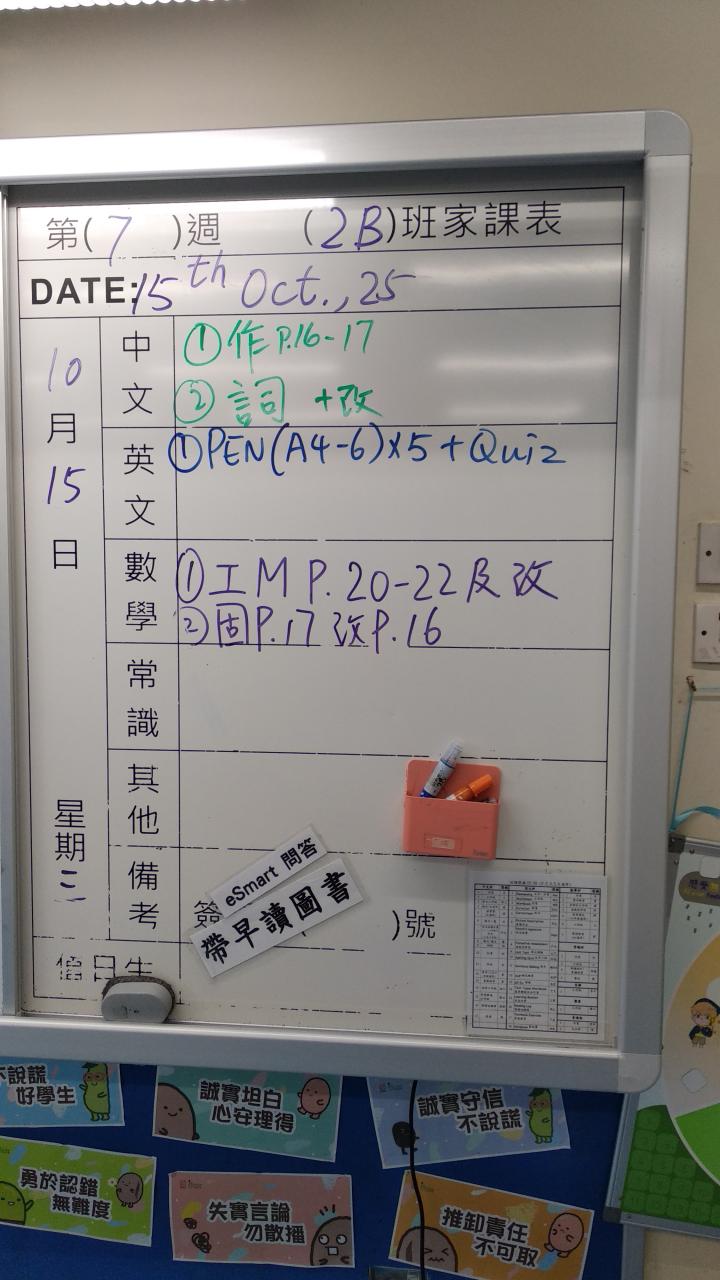 第( 7 )週 (2B)班家課表
DATE: 15th Oct., 25
10月15日
星期三
中文
①作P.16-17
②詞 +改
英文
①PEN(A4-6)x5+Quiz
數學
①工M P.20-22及改
②固P.17 改P.16
常識
其他
備考
eSmart 問答
簽
帶早讀圖書
)號
值日生
不說謊
好學生
誠實坦白
心安理得
誠實守信
不說謊
勇於認錯
無難度
失實言論
勿散播
推卸責任
不可取